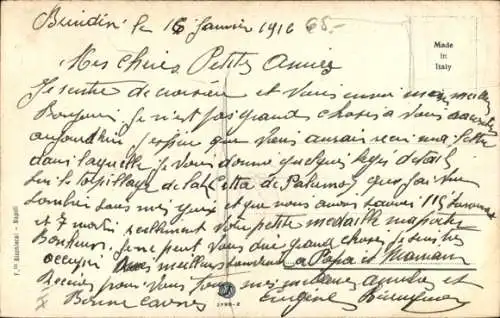 Brindisi le 16 Janvier 1916 65.-
Made
in
Italy
Mes chères Petites Amies
Je rentre de croisière et vous envoi mes meilleurs
Bonjours. Je n'est pas grandes choses à vous raconter
aujourd'hui j'espère que vous aurais recu ma lettre
dans laquelle je vous donne quelques légés détails
sur le torpillage de la Citta de Palermo, que j'ai vue
sombrer dans mes yeux et que nous avons sauver 115 hommes
et 7 morts seullement votre petite medaille ma porté
Bonheur. Je ne peut vous dire grand chose je suis très
occuper meilleurs a Papa et Maman
Recevez pour vous tous mes meilleures amitiés et
Bonne Eugène
F.lli Ricchiscai - Napoli
1795-2